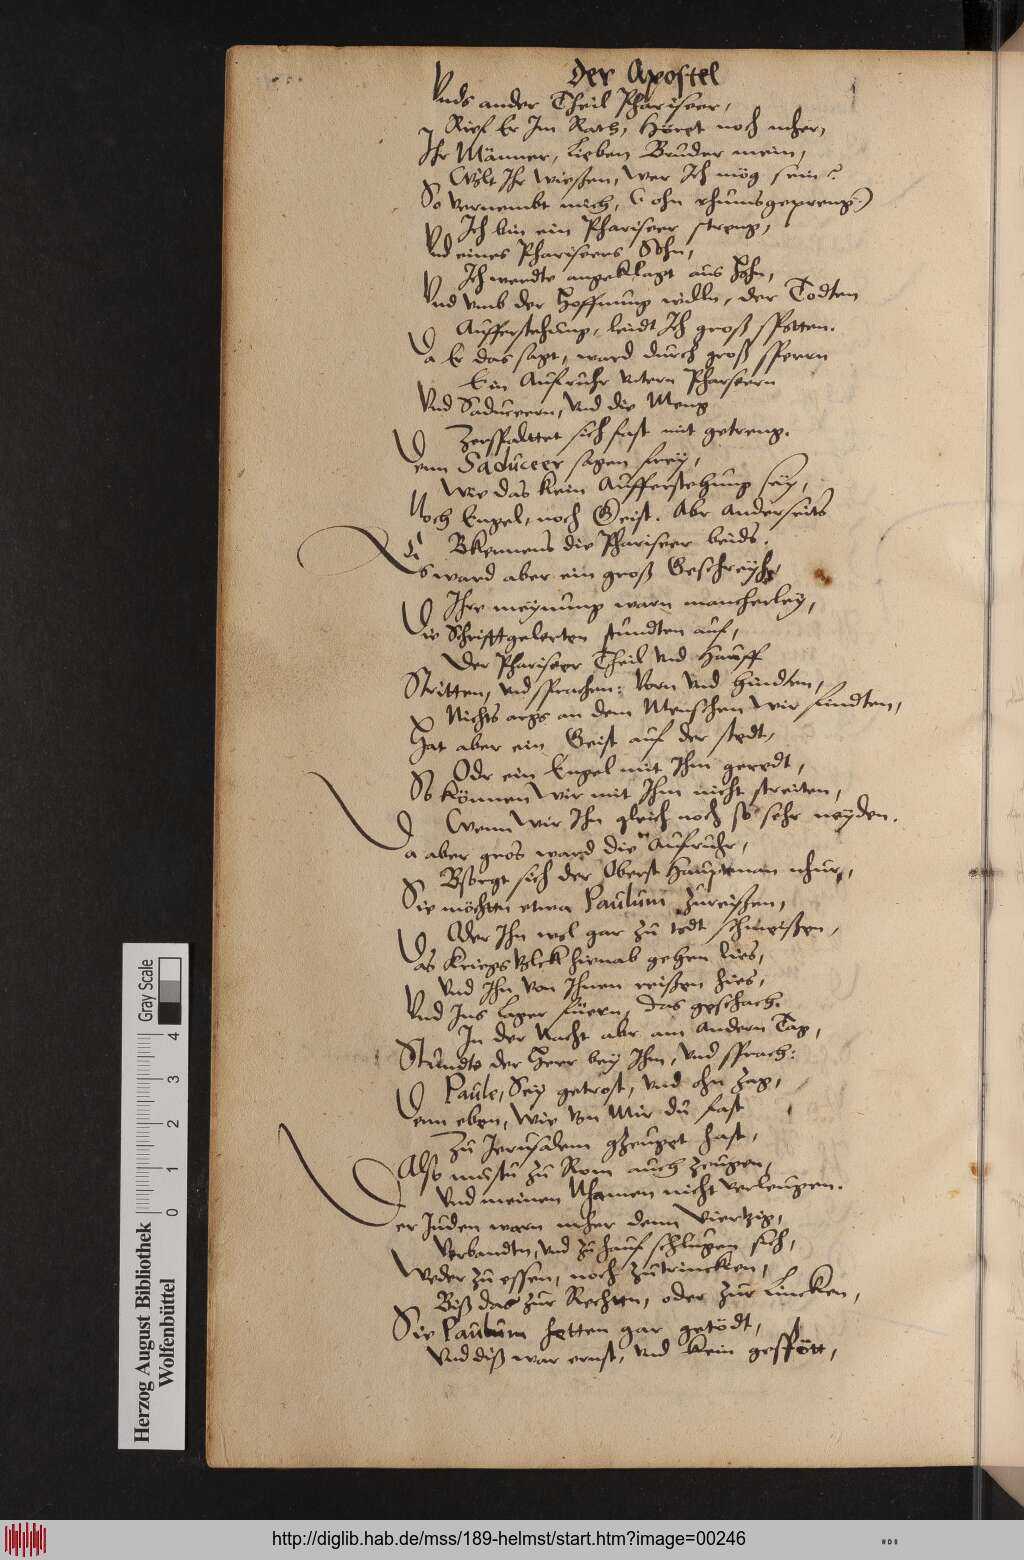 der Apostel
Vnds ander Theil Phariseer,
Rief Er Im Rath, Höret noch mher,
Ihr Männer, lieben Bruder mein,
Wolt Ihr wießen, wer Ich mög sein?
So vernembt mich, (ohn rhumsgepreng)
Ich bin ein Phariseer streng,
Vnd eines Phariseers Sohn,
Ich werdte angeklagt aus Hohn,
Vnd vmb der Hoffnung willn, der Todten
Aufferstehung, leidt Ich groß spotten.
Da Er das sagt, ward durch groß sperrn
Ein Aufruhr vntern Phariseern
Vnd Saduceern, vnd die Meng
Zerspalttet sich fast mit getreng.
Denn Saduceer sagen frey,
Wie das kein Aufferstehung sey,
Noch Engel, noch Geist. Abr Anderseits
Bkennens die Phariseer beids.
Es ward aber ein groß Geschreyhe,
Ihre meynung warn mancherley,
Die Schrifftgelerten stundten auf,
Der Phariseer Theil vnd Hauff
Stritten, vnd sprachen: Vorn vnd hindten,
Nichts args an dem Menschen wir findten,
Hat aber ein Geist auf der stedt,
Odr ein Engel mit Ihm geredt,
So können wir mit Ihm nicht streiten,
Wenn wir Ihn gleich noch so sehr neyden.
Da aber gros ward die Aufruhr,
Bsorgt sich der Oberst Hauptman nhur,
Sie möchten etwa Paulum zureißen,
Oder Ihn wol gar zu todt schmeißen,
Das Kriegs Volck hienab gehen lies,
Vnd Ihn von Ihnen reißen hies,
Vnd Ins Lager füern, das geschach.
In der Nacht abr am Andern Tag,
Stundte der Herr bey Ihm, vnd sprach:
Paule, Sey getrost, vnd ohn zag,
Denn eben, wie von Mir du fast
Zu Jerusalem gzeuget hast,
Also mustu zu Rom auch zeugen,
Vnd meinen Nhamen nicht verleugen.
Der Juden warn mher denn viertzig,
Verbandtn, vnd zu hauf schlugen sich,
Weder zu essen, noch zutrincken,
Biß das zur Rechten, oder zur Lincken,
Sie Paulum hetten gar getödt,
Vnd diß war ernst, vnd kein gespött,
Herzog August Bibliothek
Wolfenbüttel
Gray Scale
0 1 2 3 4
http://diglib.hab.de/mss/189-helmst/start.htm?image=00246